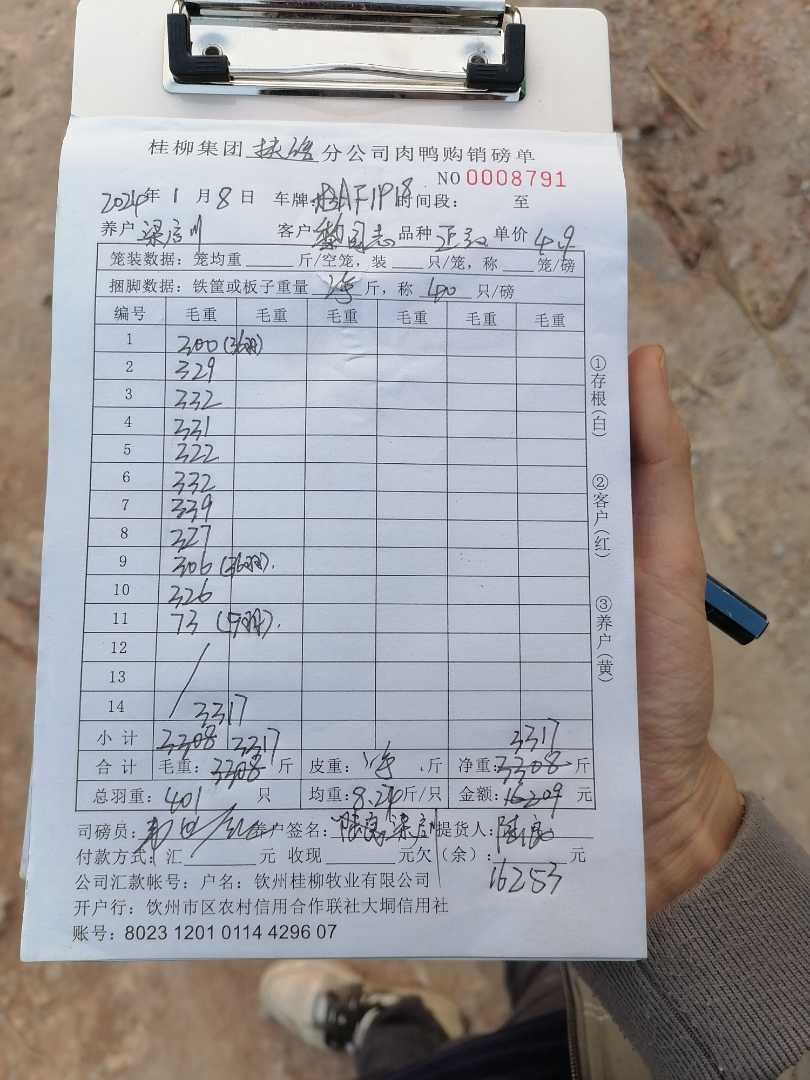 桂柳集团 分公司肉鸭购销磅单
NO 0008791
2024年1月8日 车牌: 时间段: 至
养户 梁 客户 黎同志 品种 单价 4.9
笼装数据: 笼均重 斤/空笼, 装 只/笼, 称 笼/磅
捆脚数据: 铁筐或板子重量 斤, 称 40 只/磅
编号 毛重 毛重 毛重 毛重 毛重 毛重
1 300 (36羽)
2 329
3 332
4 331
5 322
6 332
7 339
8 327
9 306 (36羽).
10 326
11 73 (9羽).
12
13
14 3317
小计 3308 3317 3317
合计 毛重: 3308 斤 皮重: 斤 净重: 3308 斤
总羽重: 401 只 均重: 8.24 斤/只 金额: 16209 元
司磅员: 养户签名: 提货人:
付款方式: 汇 元 收现 元欠(余): 元
16253
公司汇款帐号: 户名: 钦州桂柳牧业有限公司
开户行: 钦州市区农村信用合作联社大垌信用社
账号: 8023 1201 0114 4296 07
①存根(白)
②客户(红)
③养户(黄)